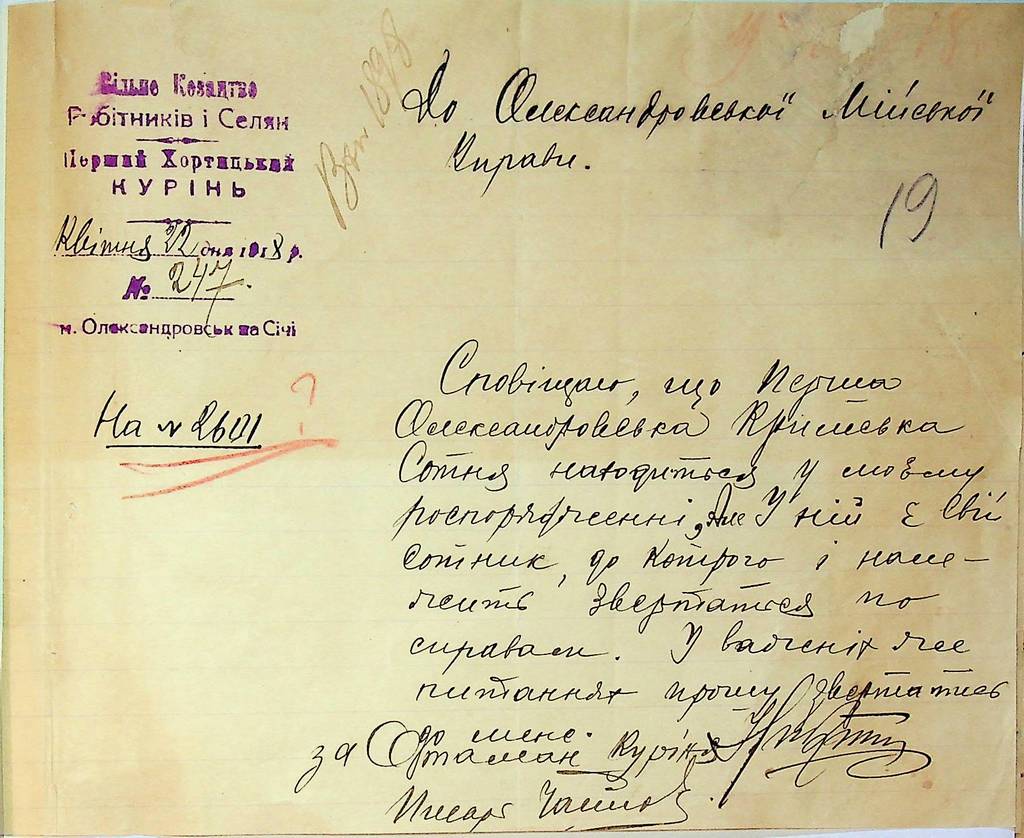 Вільне Козацтво
Робітників і Селян
Перший Хортицький
КУРІНЬ
Квітня 22 дня 1918 р.
№ 247.
м. Олександровськ на Січі
На № 2601 ?
Вх. 1898
До Олександровської Мійської
Управи.
19
Сповіщаю, що Перша
Олександровська Кримська
Сотня находиться у моєму
роспоряженні, Але У ній є Свій
сотник, до котрого і нале-
жить звертаться по
справам. У важних же
питаннях прошу звертатись
до мене.
за Отаман куріня
Писарь